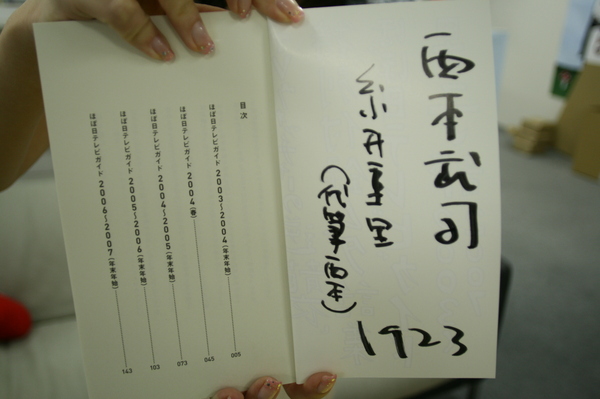 西本武司
糸井重里
(代筆西本)
1923
目次
ほぼ日テレビガイド 2003〜2004[年末年始] 005
ほぼ日テレビガイド 2004[春] 045
ほぼ日テレビガイド 2004〜2005[年末年始] 073
ほぼ日テレビガイド 2005〜2006[年末年始] 103
ほぼ日テレビガイド 2006〜2007[年末年始] 143